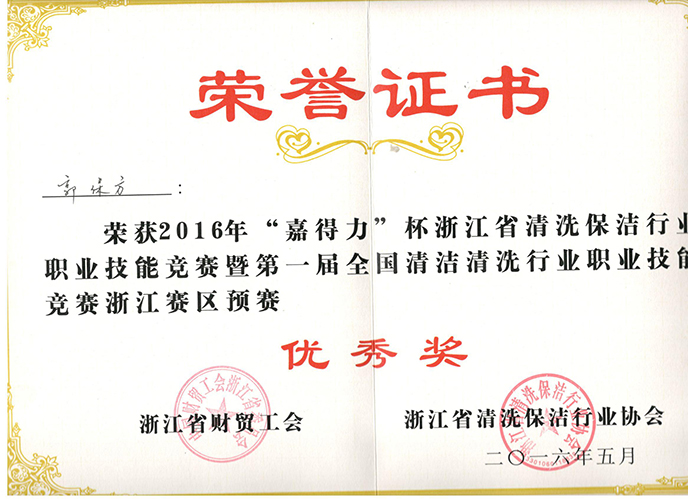 荣誉证书
郭保方：
荣获2016年“嘉得力”杯浙江省清洗保洁行业
职业技能竞赛暨第一届全国清洁清洗行业职业技能
竞赛浙江赛区预赛
优秀奖
浙江省财贸工会
浙江省清洗保洁行业协会
二〇一六年五月